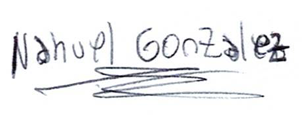 Nahuel Gonzalez